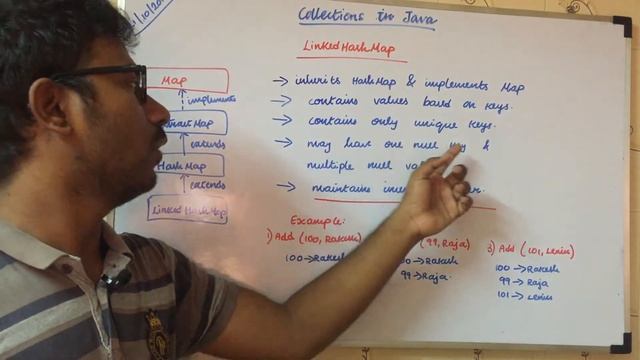 /10/20
Collections in Java
LinkedHashMap
→ inherits HashMap & implements Map
→ contains values based on keys.
→ contains only unique keys.
→ may have one null key &
multiple null
→ maintains
Map
implements
Map
extends
HashMap
extends
LinkedHashMap
Example:
1) Add (100, Rakesh)
100→Rakesh
(99, Raja)
→Rakesh
99→Raja.
3) Add (101, Lenin)
100→Rakesh
99→Raja
101→Lenin